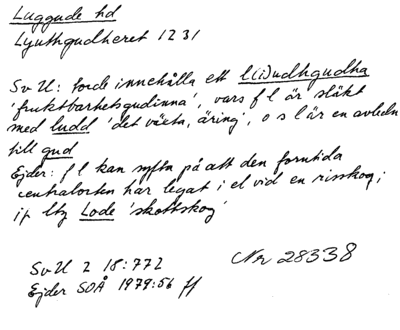 Luggude hd
Lyuthgudheret 1231
SvU: torde innehålla ett l(i)udhgudha
'fruktbarhetsgudinna', vars f l är släkt
med ludd 'det växta, äring', o s l är en avledn
till gud
Ejder: f l kan syfta på att den forntida
centralorten har legat i el vid en risskog;
jf lty Lode 'skottskog'
SvU 2 18:772
Ejder SOÅ 1979:56 ff
Nr 28338